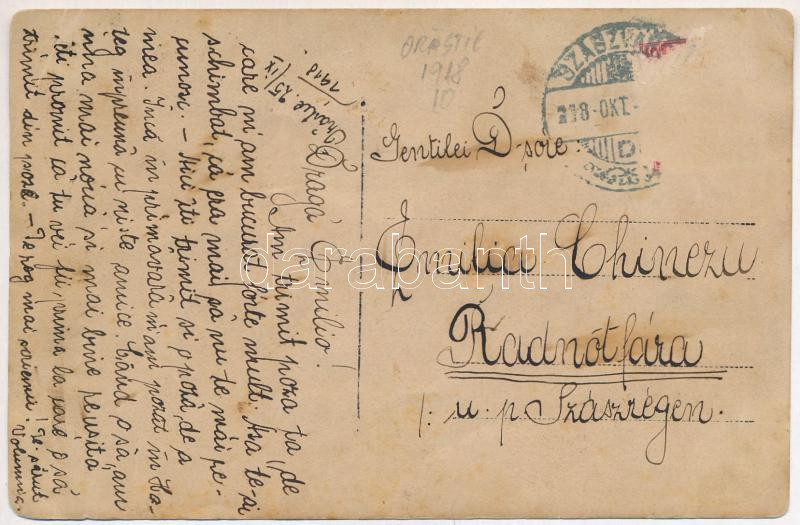 ORĂȘTIE
1918
10
SZÁSZV
918-OKT.-
Orăștie 25/IX
1918
Dragă Emilio!
Am primit poza ta, de
care m'am bucurat foarte mult. Așa te-ai
schimbat, că era mai să nu te mai re-
cunosc. - Aici îți trimit și o poză de a
mea. Încă în primăvară m'am pozat în Ha-
țeg împreună cu niște amice. Când o să am
una mai nouă și mai bine reușită
îți promit că tu vei fi prima la care o să
trimit din poze. - Te rog mai scriemi! Te sărut
Volumnia.
Gentilei D-șoare:
Emilia Chinezu
Radnótfára
/: u. p. Szászrégen.
darabanth